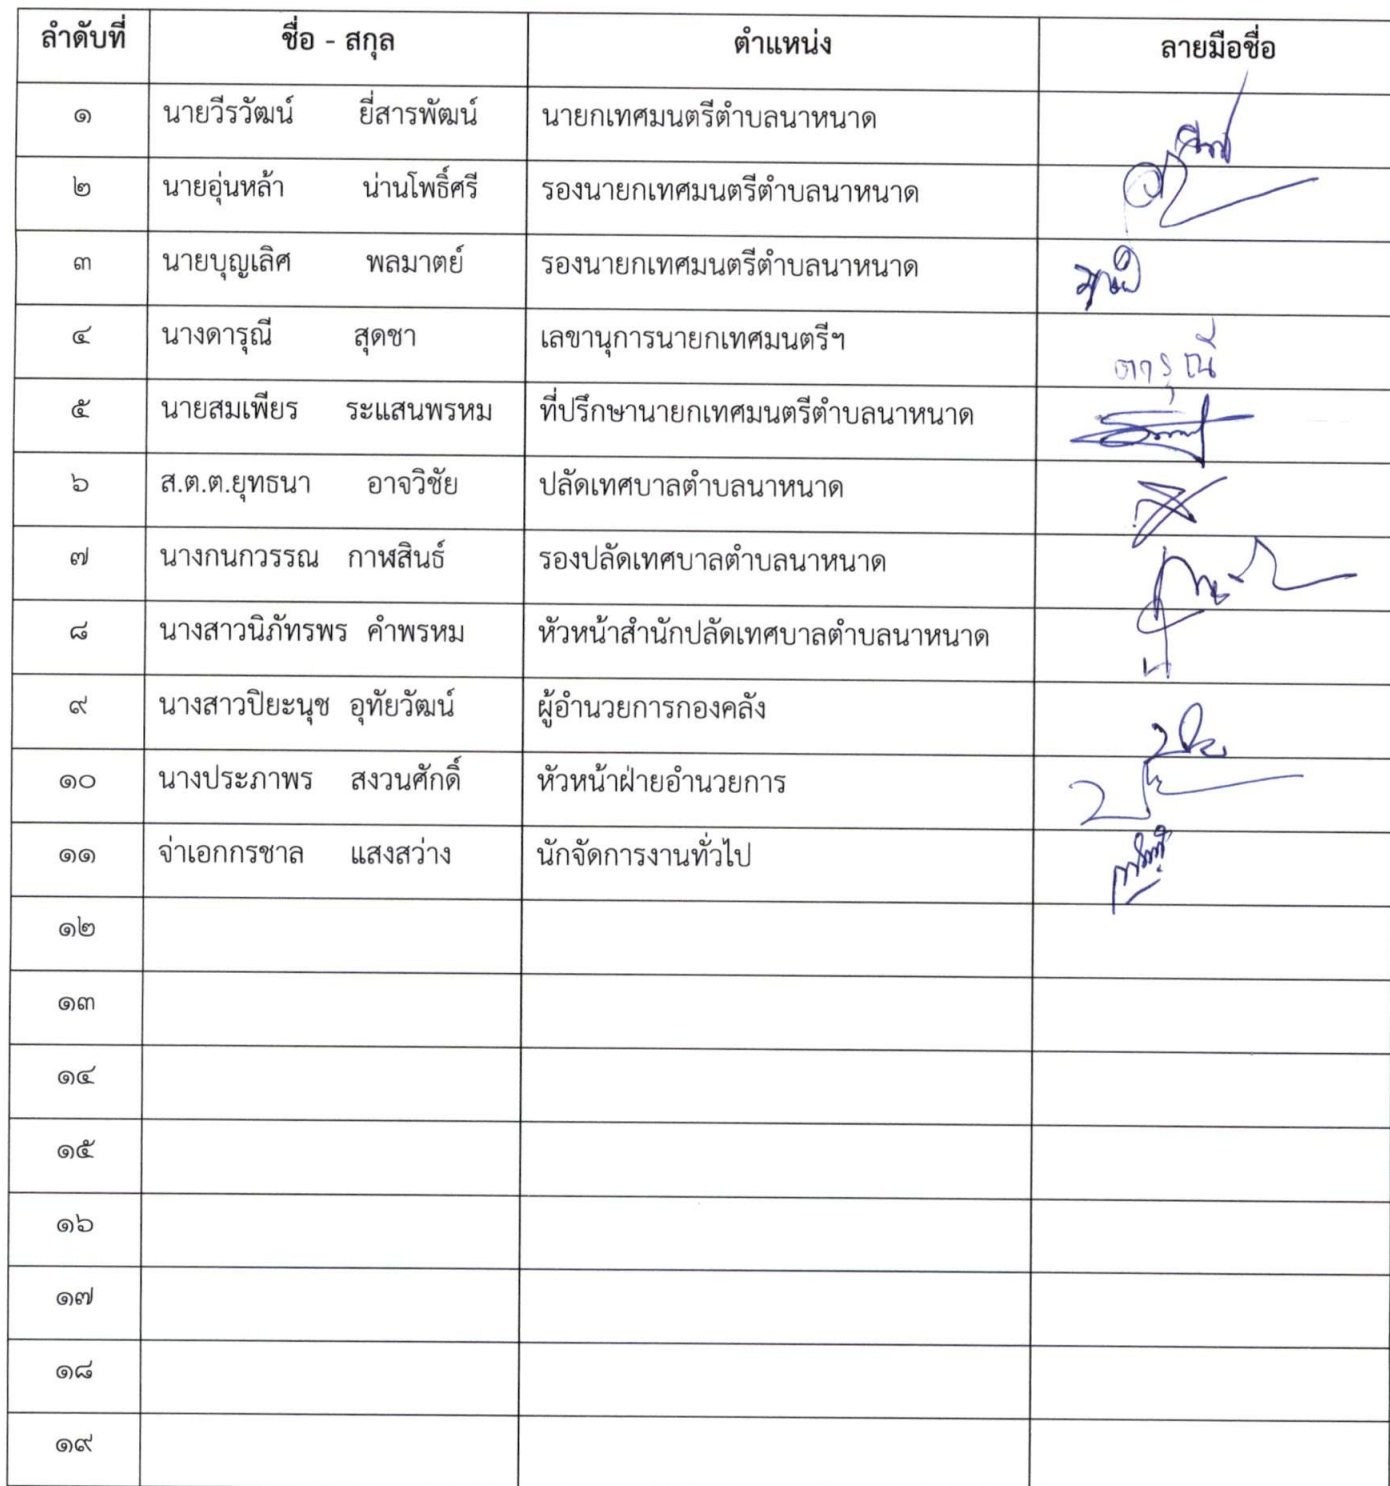 ลำดับที่ ชื่อ - สกุล ตำแหน่ง ลายมือชื่อ
๑ นายวีรวัฒน์ ยี่สารพัฒน์ นายกเทศมนตรีตำบลนาหนาด
๒ นายอุ่นหล้า น่านโพธิ์ศรี รองนายกเทศมนตรีตำบลนาหนาด
๓ นายบุญเลิศ พลมาตย์ รองนายกเทศมนตรีตำบลนาหนาด
๔ นางดารุณี สุดชา เลขานุการนายกเทศมนตรีฯ ดารุณี
๕ นายสมเพียร ระแสนพรหม ที่ปรึกษานายกเทศมนตรีตำบลนาหนาด
๖ ส.ต.ต.ยุทธนา อาจวิชัย ปลัดเทศบาลตำบลนาหนาด
๗ นางกนกวรรณ กาฬสินธ์ รองปลัดเทศบาลตำบลนาหนาด
๘ นางสาวนิภัทรพร คำพรหม หัวหน้าสำนักปลัดเทศบาลตำบลนาหนาด
๙ นางสาวปิยะนุช อุทัยวัฒน์ ผู้อำนวยการกองคลัง
๑๐ นางประภาพร สงวนศักดิ์ หัวหน้าฝ่ายอำนวยการ
๑๑ จ่าเอกกรชาล แสงสว่าง นักจัดการงานทั่วไป
๑๒
๑๓
๑๔
๑๕
๑๖
๑๗
๑๘
๑๙